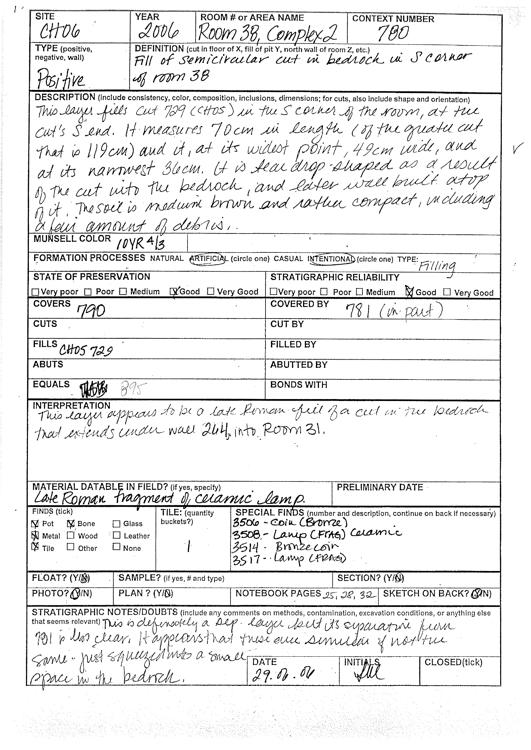 SITE YEAR ROOM # or AREA NAME CONTEXT NUMBER
CH06 2006 Room 38, Complex 2 780
TYPE (positive, negative, wall) DEFINITION (cut in floor of X, fill of pit Y, north wall of room Z, etc.)
Positive Fill of semicircular cut in bedrock in S corner
of room 38
DESCRIPTION (include consistency, color, composition, inclusions, dimensions; for cuts, also include shape and orientation)
This layer fills cut 729 (CH05) in the S corner of the room, at the
cut's S end. It measures 70cm in length (of the greater cut
that is 119cm) and it, at its widest point, 49cm wide, and
at its narrowest 36cm. It is tear drop-shaped as a result
of the cut into the bedrock, and later wall built atop
of it. The soil is medium brown and rather compact, including
a fair amount of debris.
MUNSELL COLOR 10YR 4/3
FORMATION PROCESSES NATURAL ARTIFICIAL (circle one) CASUAL INTENTIONAL (circle one) TYPE: Filling
STATE OF PRESERVATION STRATIGRAPHIC RELIABILITY
Very poor Poor Medium Good Very Good Very poor Poor Medium Good Very Good
COVERS 790 COVERED BY 781 (in part)
CUTS CUT BY
FILLS CH05 729 FILLED BY
ABUTS ABUTTED BY
EQUALS 895 BONDS WITH
INTERPRETATION
This layer appears to be a late Roman fill of a cut in the bedrock
that extends under wall 264, into Room 31.
MATERIAL DATABLE IN FIELD? (if yes, specify) PRELIMINARY DATE
Late Roman fragment of ceramic lamp.
FINDS (tick) TILE: (quantity buckets?) SPECIAL FINDS (number and description, continue on back if necessary)
Pot Bone Glass 3506 - Coin (Bronze)
Metal Wood Leather 3508 - Lamp (FRAG) Ceramic
Tile Other None 1 3514 - Bronze coin
3517 - Lamp (FRAG)
FLOAT? (Y/N) SAMPLE? (if yes, # and type) SECTION? (Y/N)
PHOTO? (Y/N) PLAN? (Y/N) NOTEBOOK PAGES 25, 28, 32 SKETCH ON BACK? (Y/N)
STRATIGRAPHIC NOTES/DOUBTS (include any comments on methods, contamination, excavation conditions, or anything else
that seems relevant) This is definitely a sep. layer but its separation from
781 is less clear. It appears that these are similar if not the
same - just squeezed into a small
space in the bedrock.
DATE INITIALS CLOSED(tick)
29.06.06